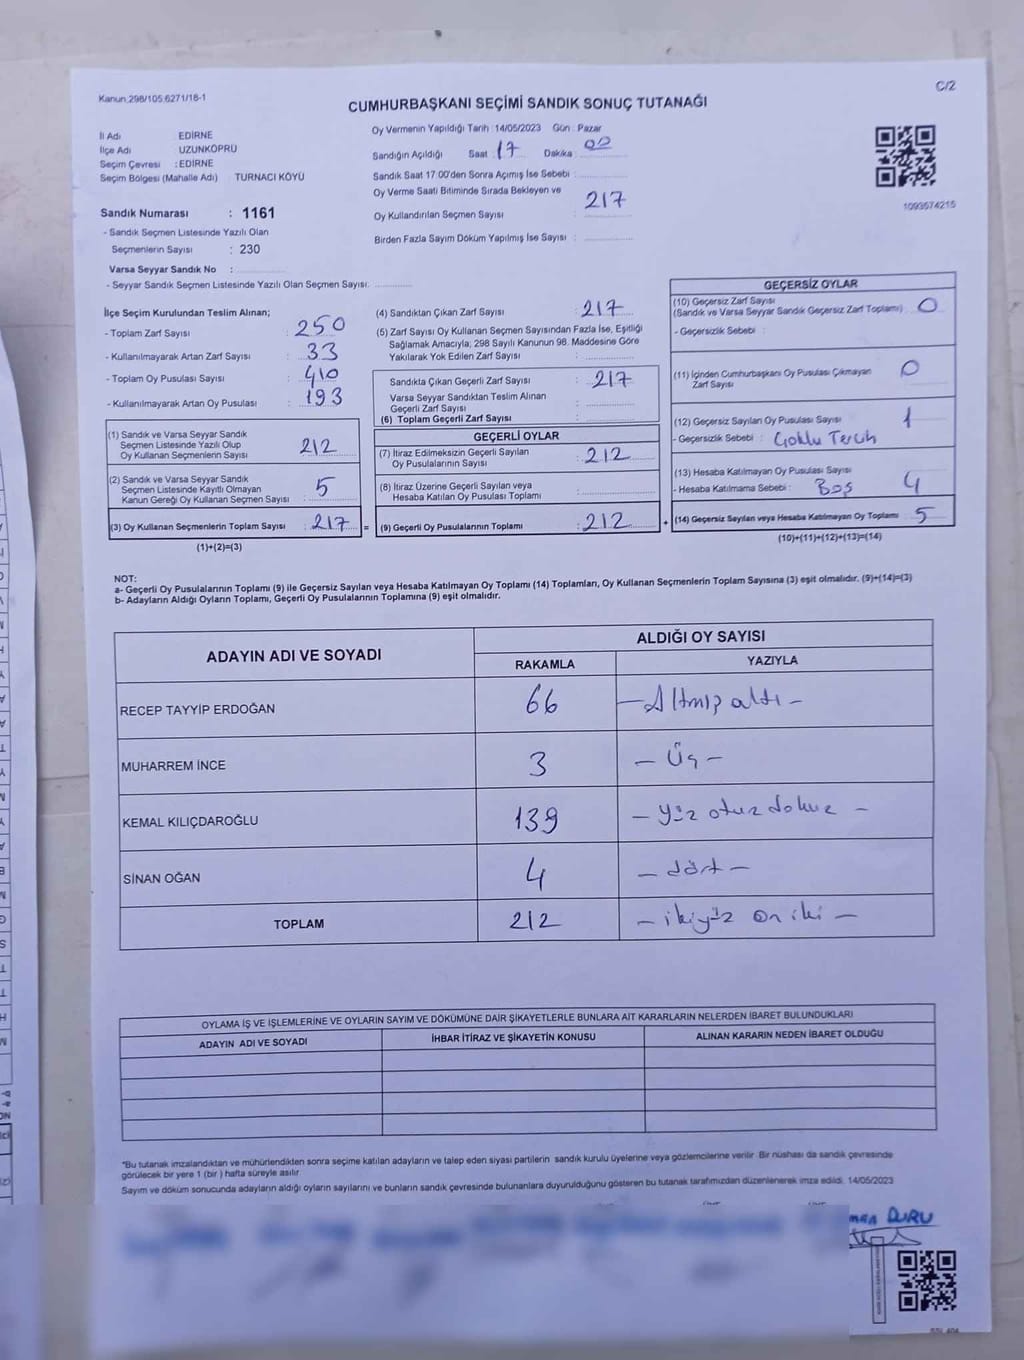 Kanun.298/105.6271/18-1
C/2
CUMHURBAŞKANI SEÇİMİ SANDIK SONUÇ TUTANAĞI
İl Adı EDİRNE
İlçe Adı UZUNKÖPRÜ
Seçim Çevresi : EDİRNE
Seçim Bölgesi (Mahalle Adı) TURNACI KÖYÜ
Sandık Numarası : 1161
- Sandık Seçmen Listesinde Yazılı Olan
Seçmenlerin Sayısı : 230
Varsa Seyyar Sandık No :
- Seyyar Sandık Seçmen Listesinde Yazılı Olan Seçmen Sayısı:
Oy Vermenin Yapıldığı Tarih :14/05/2023 Gün : Pazar
Sandığın Açıldığı Saat : 17 Dakika : 00
Sandık Saat 17:00'den Sonra Açımış İse Sebebi :
Oy Verme Saati Bitiminde Sırada Bekleyen ve
Oy Kullandırılan Seçmen Sayısı : 217
Birden Fazla Sayım Döküm Yapılmış İse Sayısı :
1093574215
İlçe Seçim Kurulundan Teslim Alınan;
- Toplam Zarf Sayısı : 250
- Kullanılmayarak Artan Zarf Sayısı : 33
- Toplam Oy Pusulası Sayısı : 410
- Kullanılmayarak Artan Oy Pusulası : 193
(1) Sandık ve Varsa Seyyar Sandık
Seçmen Listesinde Yazılı Olup
Oy Kullanan Seçmenlerin Sayısı : 212
(2) Sandık ve Varsa Seyyar Sandık
Seçmen Listesinde Kayıtlı Olmayan
Kanun Gereği Oy Kullanan Seçmen Sayısı : 5
(3) Oy Kullanan Seçmenlerin Toplam Sayısı : 217 =
(1)+(2)=(3)
(4) Sandıktan Çıkan Zarf Sayısı : 217
(5) Zarf Sayısı Oy Kullanan Seçmen Sayısından Fazla İse, Eşitliği
Sağlamak Amacıyla; 298 Sayılı Kanunun 98. Maddesine Göre
Yakılarak Yok Edilen Zarf Sayısı :
Sandıkta Çıkan Geçerli Zarf Sayısı : 217
Varsa Seyyar Sandıktan Teslim Alınan
Geçerli Zarf Sayısı :
(6) Toplam Geçerli Zarf Sayısı :
GEÇERLİ OYLAR
(7) İtiraz Edilmeksizin Geçerli Sayılan
Oy Pusulalarının Sayısı : 212
(8) İtiraz Üzerine Geçerli Sayılan veya
Hesaba Katılan Oy Pusulası Toplamı :
(9) Geçerli Oy Pusulalarının Toplamı : 212 +
GEÇERSİZ OYLAR
(10) Geçersiz Zarf Sayısı
(Sandık ve Varsa Seyyar Sandık Geçersiz Zarf Toplamı) : 0
- Geçersizlik Sebebi :
(11) İçinden Cumhurbaşkanı Oy Pusulası Çıkmayan
Zarf Sayısı 0
(12) Geçersiz Sayılan Oy Pusulası Sayısı 1
- Geçersizlik Sebebi : Çoklu Tercih
(13) Hesaba Katılmayan Oy Pusulası Sayısı
- Hesaba Katılmama Sebebi : Boş 4
(14) Geçersiz Sayılan veya Hesaba Katılmayan Oy Toplamı 5
(10)+(11)+(12)+(13)=(14)
NOT:
a- Geçerli Oy Pusulalarının Toplamı (9) ile Geçersiz Sayılan veya Hesaba Katılmayan Oy Toplamı (14) Toplamları, Oy Kullanan Seçmenlerin Toplam Sayısına (3) eşit olmalıdır. (9)+(14)=(3)
b- Adayların Aldığı Oyların Toplamı, Geçerli Oy Pusulalarının Toplamına (9) eşit olmalıdır.
ADAYIN ADI VE SOYADI
ALDIĞI OY SAYISI
RAKAMLA YAZIYLA
RECEP TAYYİP ERDOĞAN 66 - Altmış altı -
MUHARREM İNCE 3 - Üç -
KEMAL KILIÇDAROĞLU 139 - yüz otuz dokuz -
SİNAN OĞAN 4 - dört -
TOPLAM 212 - ikiyüz on iki -
OYLAMA İŞ VE İŞLEMLERİNE VE OYLARIN SAYIM VE DÖKÜMÜNE DAİR ŞİKAYETLERLE BUNLARA AİT KARARLARIN NELERDEN İBARET BULUNDUKLARI
ADAYIN ADI VE SOYADI İHBAR İTİRAZ VE ŞİKAYETİN KONUSU ALINAN KARARIN NEDEN İBARET OLDUĞU
*Bu tutanak imzalandıktan ve mühürlendikten sonra seçime katılan adayların ve talep eden siyasi partilerin sandık kurulu üyelerine veya gözlemcilerine verilir. Bir nüshası da sandık çevresinde
görülecek bir yere 1 (bir ) hafta süreyle asılır
Sayım ve döküm sonucunda adayların aldığı oyların sayılarını ve bunların sandık çevresinde bulunanlara duyurulduğunu gösteren bu tutanak tarafımızdan düzenlenerek imza edildi. 14/05/2023
DURU